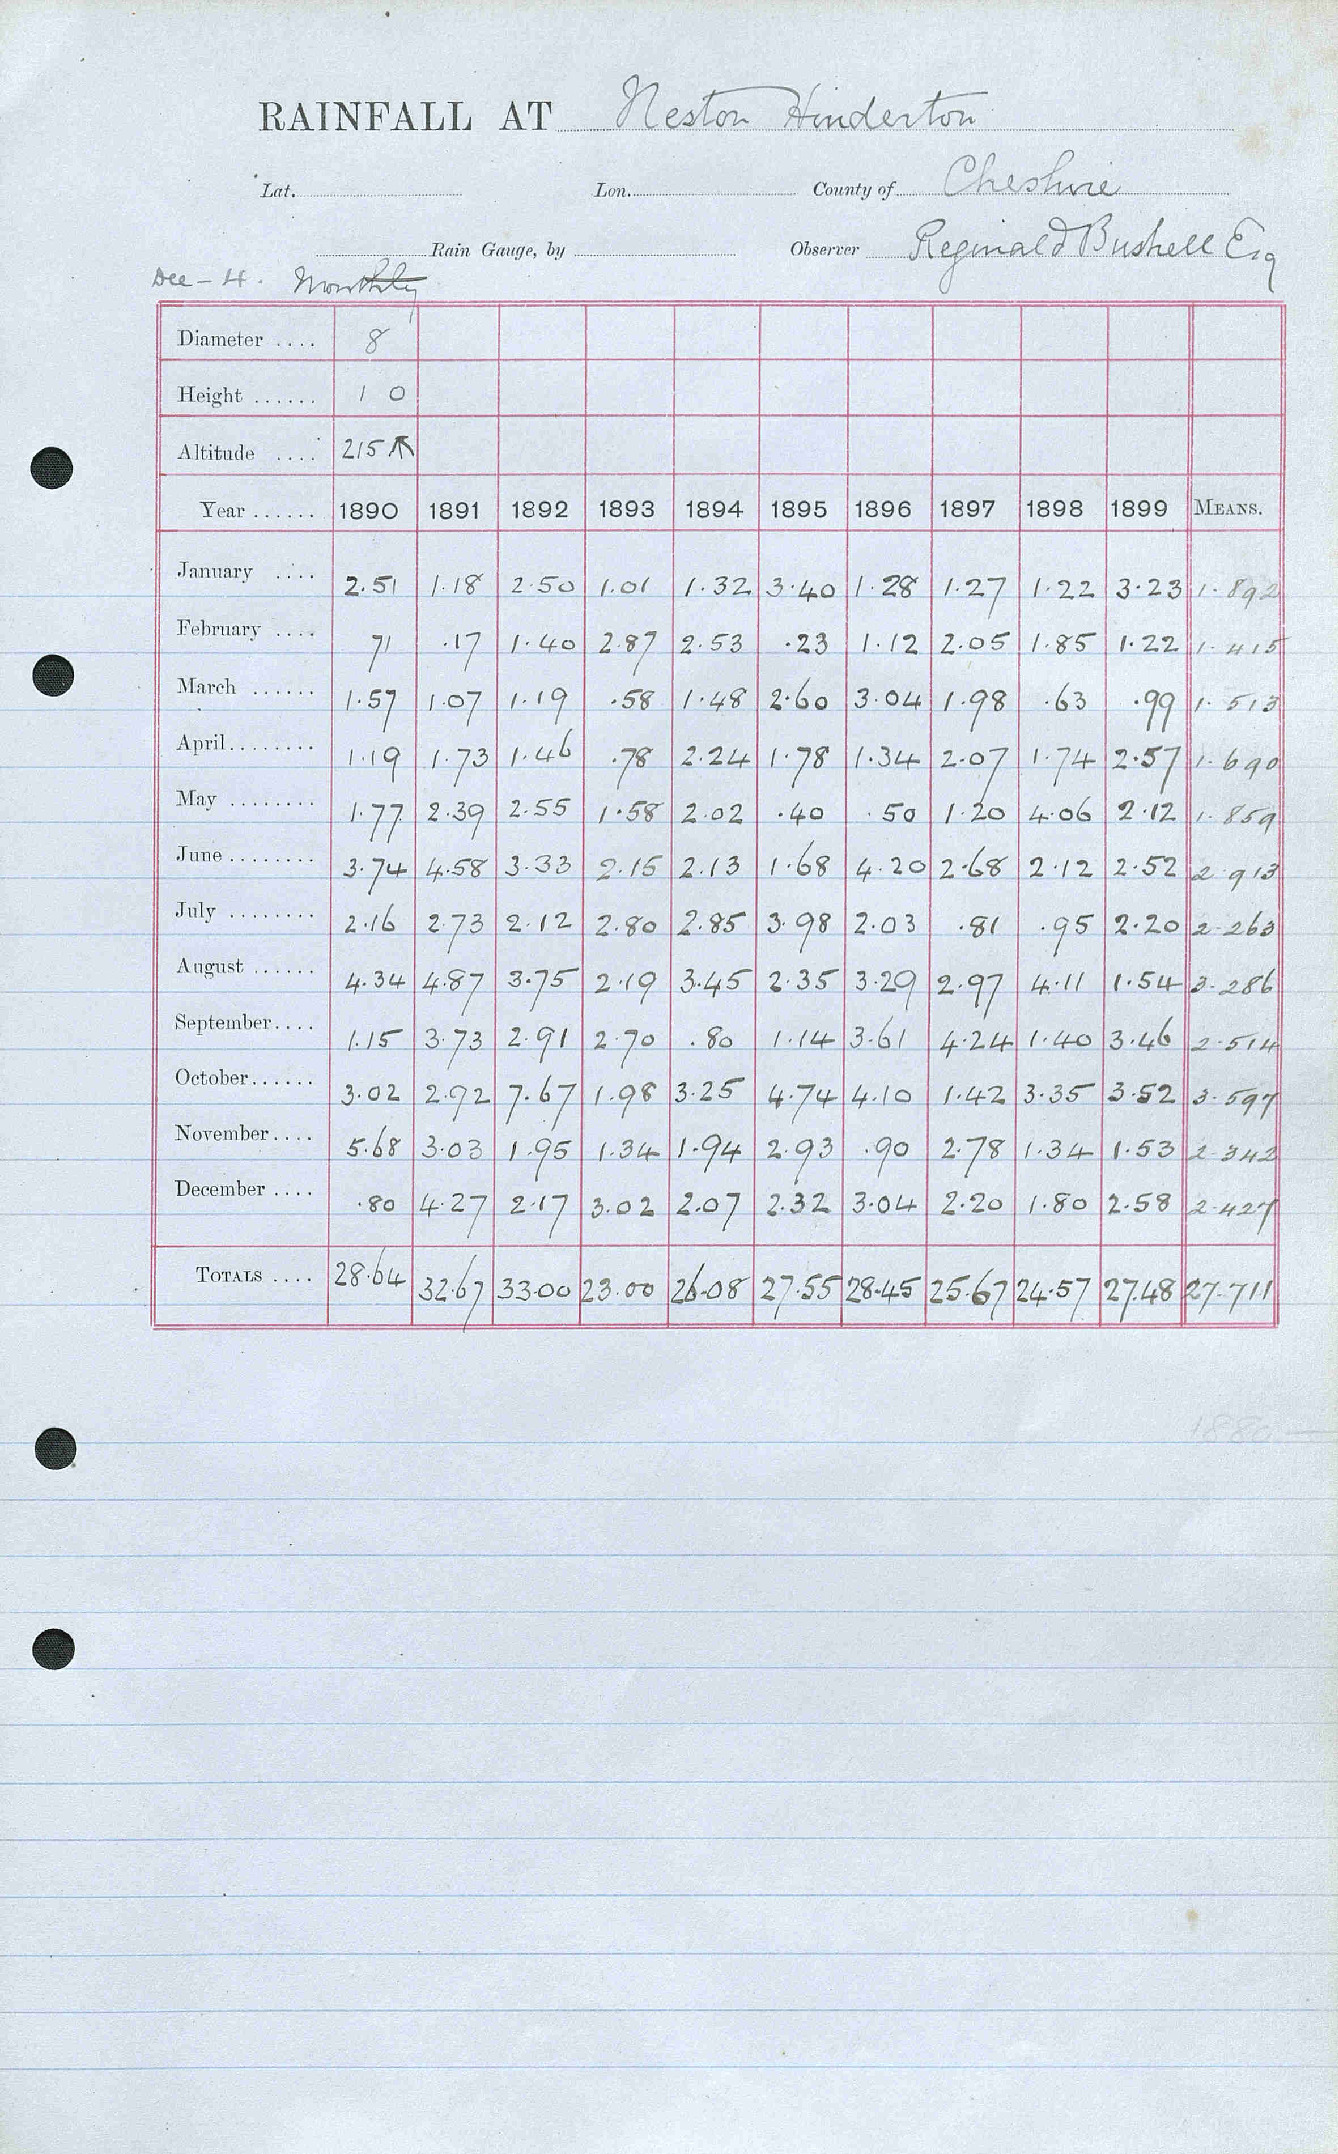 RAINFALL AT Neston Hinderton
Lat. Lon. County of Cheshire
Rain Gauge, by Observer Reginald Bushell Esq
Dec - 4. Monthly
Diameter .... 8
Height ...... 1 0
Altitude .... 215
Year ...... 1890 1891 1892 1893 1894 1895 1896 1897 1898 1899 MEANS.
January .... 2.51 1.18 2.50 1.01 1.32 3.40 1.28 1.27 1.22 3.23 1.892
February .... 71 .17 1.40 2.87 2.53 .23 1.12 2.05 1.85 1.22 1.415
March ...... 1.57 1.07 1.19 .58 1.48 2.60 3.04 1.98 .63 .99 1.513
April........ 1.19 1.73 1.46 .78 2.24 1.78 1.34 2.07 1.74 2.57 1.690
May ........ 1.77 2.39 2.55 1.58 2.02 .40 .50 1.20 4.06 2.12 1.859
June........ 3.74 4.58 3.33 2.15 2.13 1.68 4.20 2.68 2.12 2.52 2.913
July ........ 2.16 2.73 2.12 2.80 2.85 3.98 2.03 .81 .95 2.20 2.263
August ...... 4.34 4.87 3.75 2.19 3.45 2.35 3.29 2.97 4.11 1.54 3.286
September.... 1.15 3.73 2.91 2.70 .80 1.14 3.61 4.24 1.40 3.46 2.514
October...... 3.02 2.92 7.67 1.98 3.25 4.74 4.10 1.42 3.35 3.52 3.597
November.... 5.68 3.03 1.95 1.34 1.94 2.93 .90 2.78 1.34 1.53 2.342
December .... .80 4.27 2.17 3.02 2.07 2.32 3.04 2.20 1.80 2.58 2.427
TOTALS .... 28.64 32.67 33.00 23.00 26.08 27.55 28.45 25.67 24.57 27.48 27.711
1880 —